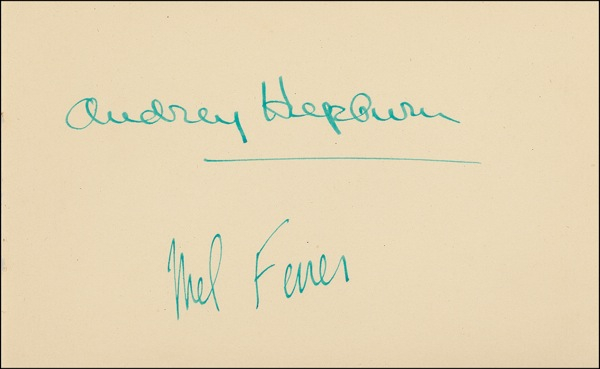 Audrey Hepburn
Mel Ferrer